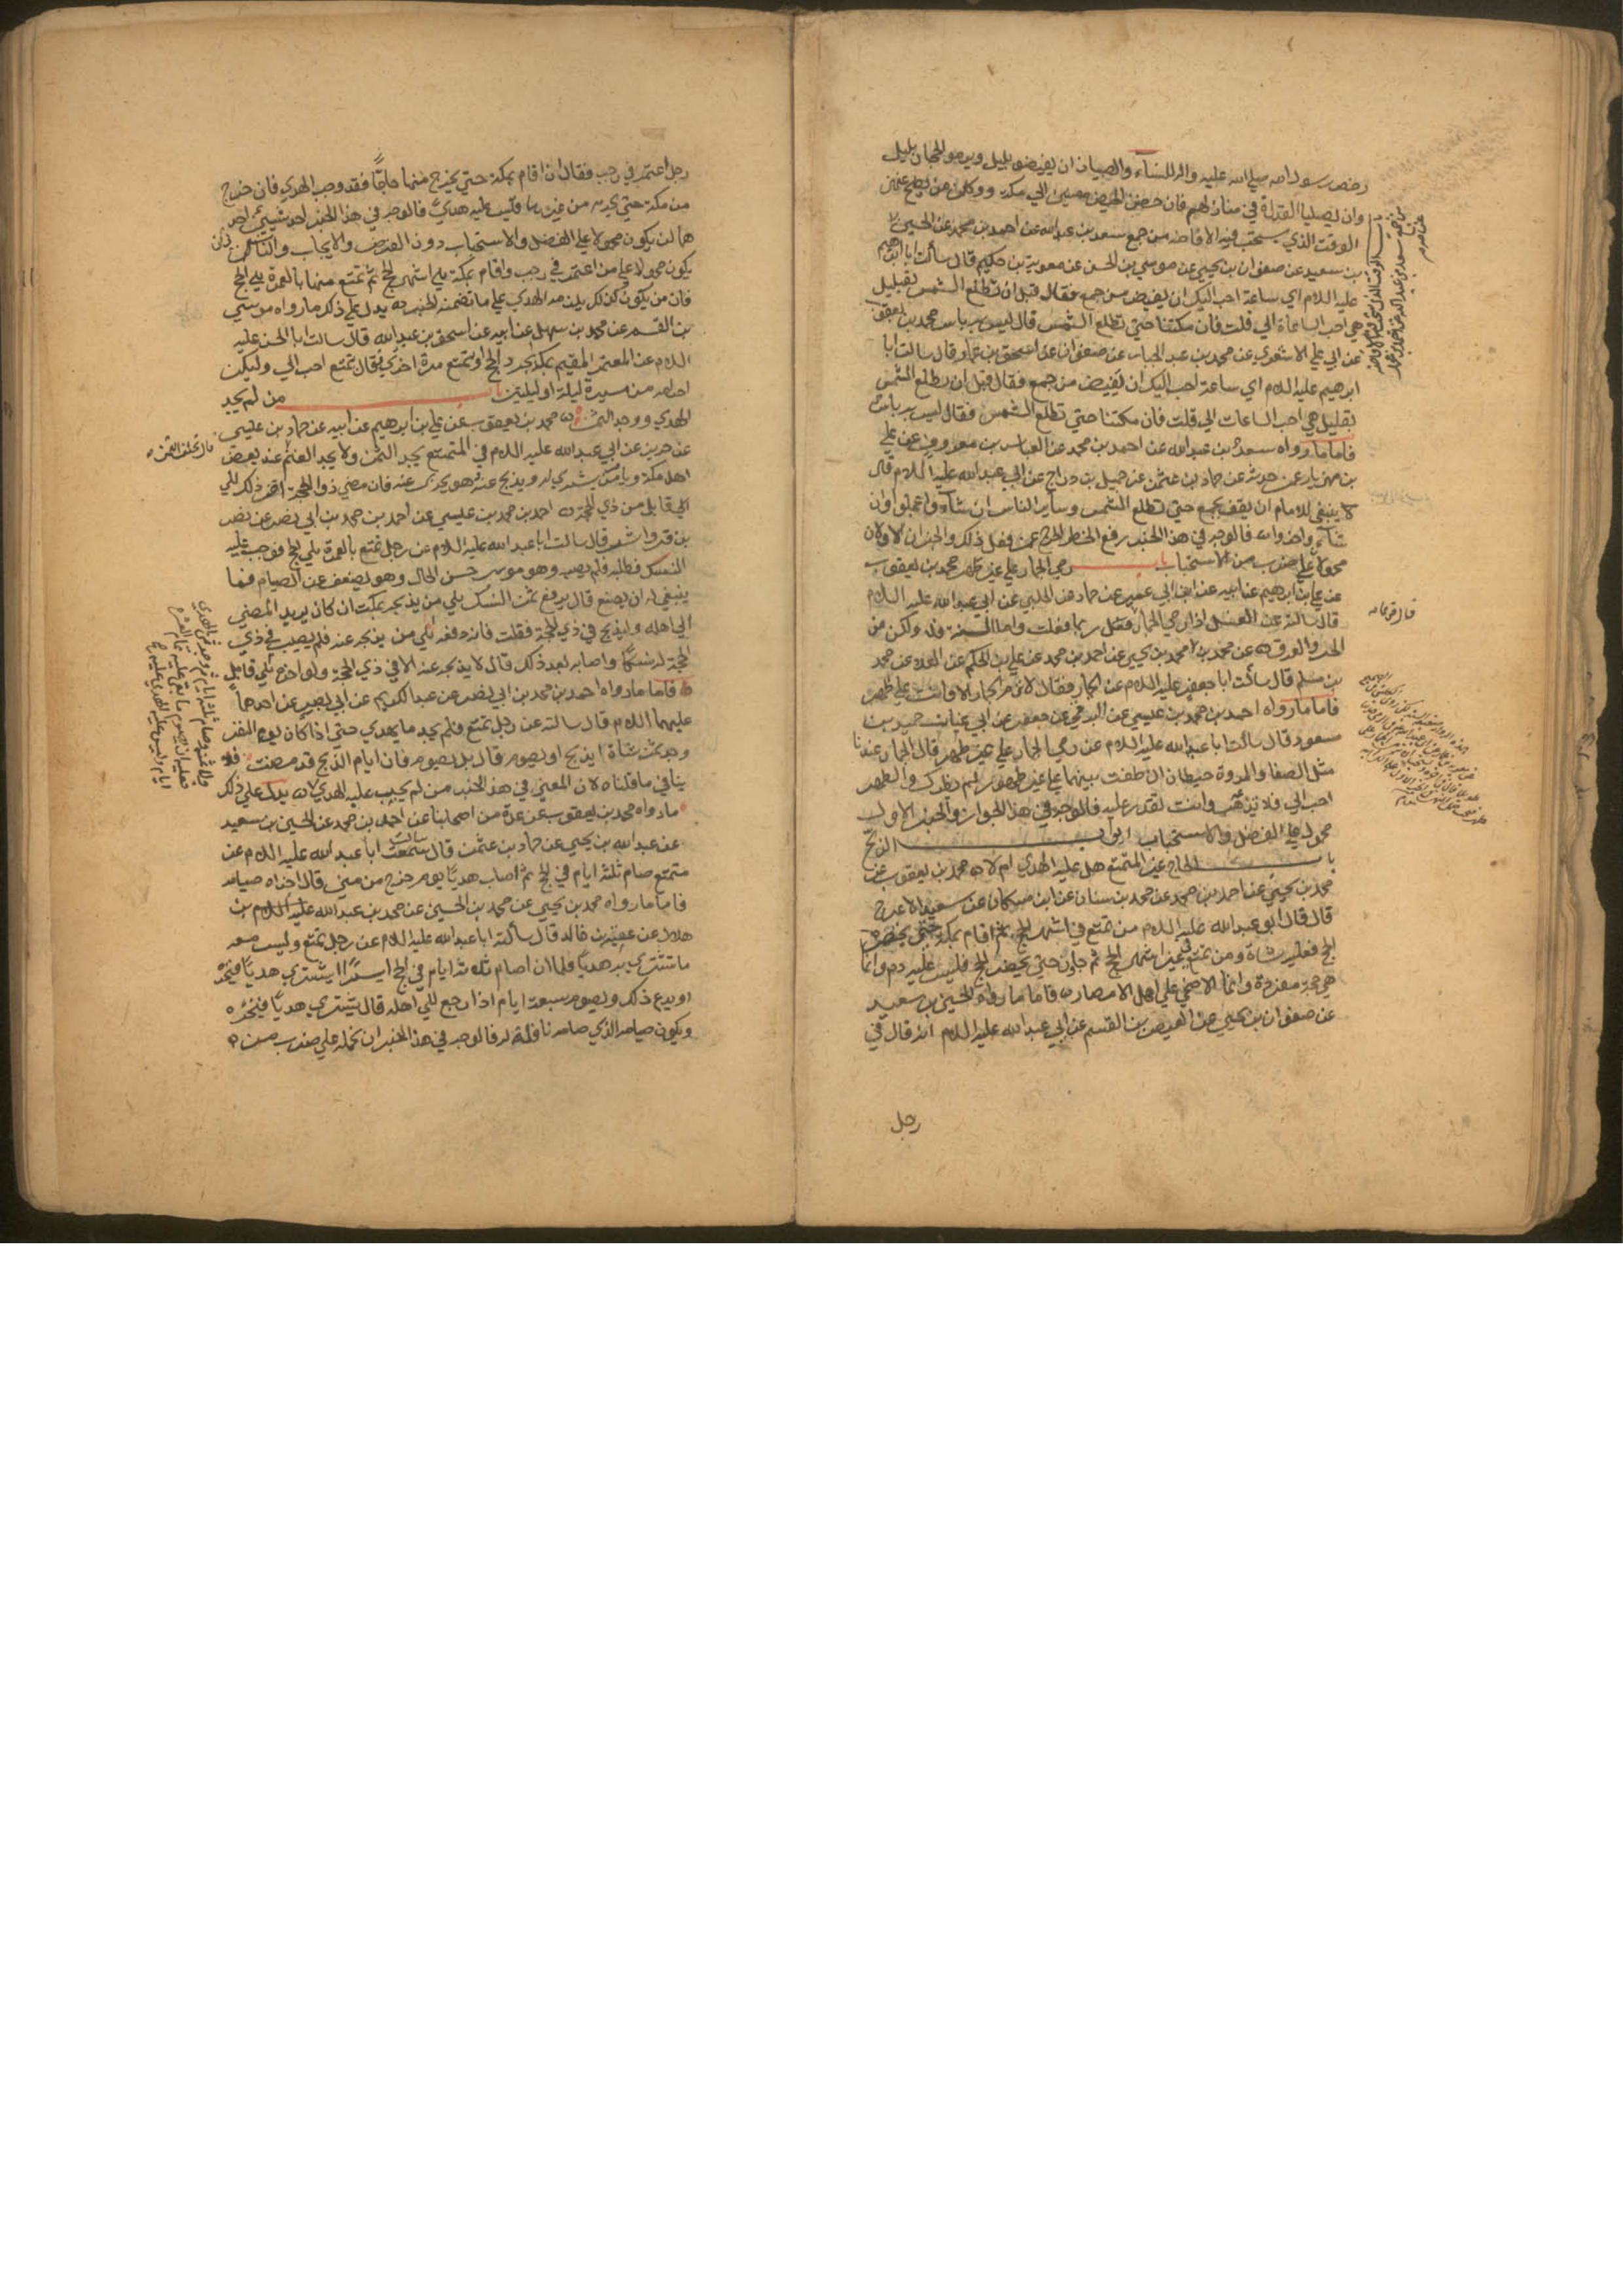 رخص رسول الله صلى الله عليه واله للنسآء والصبيان ان يفيضوا بليل ويرموا الجمار بليل
وان يصلوا الغداة في منازلهم فان خفن الحيض مضين الى مكة ووكلن من يضحي عنهن
الوقت الذي يستحب فيه الافاضة من جمع سعد بن عبد الله عن احمد بن محمد عن الحسين
بن سعيد عن صفوان بن يحيى عن موسى بن الحسن عن معوية بن حكيم قال سألت ابا ابراهيم
عليه اللام اي ساعة احب اليك ان يفيض من جمع فقال قبل ان تطلع الشمس بقليل
هي احب الساعات الي قلت فان مكثنا حتى تطلع الشمس قال ليس به باس محمد بن يعقوب
عن ابي علي الاشعري عن محمد بن عبد الجبار عن صفوان عن اسحق بن عمار قال سالت ابا
ابرهيم عليه اللام اي ساعة احب اليك ان يفيض من جمع فقال قبل ان تطلع الشمس
بقليل هي احب الساعات الي قلت فان مكثنا حتى تطلع الشمس فقال ليس به باس
فاما ما رواه سعد بن عبد الله عن احمد بن محمد عن العباس بن معروف عن علي
بن مهزيار عمن حدثه عن حماد بن عثمن عن جميل بن دراج عن ابي عبد الله عليه اللام قال
لا ينبغي للامام ان يقف بجمع حتى تطلع الشمس وساير الناس ان شآؤا عجلوا وان
شآؤا اخروا فالوجه في هذا الخبر رفع الحظر والحرج عمن فعل ذلك والخبران الاولان
محمولان على ضرب من الاستحباب باب رمي الجمار على غير طهر محمد بن يعقوب
عن علي بن ابرهيم عن ابيه عن ابن ابي عمير عن حماد عن الحلبي عن ابي عبد الله عليه اللام
قال سالته عن الغسل اذا رمى الجمار فقال ربما فعلت واما السنة فلا ولكن من
الحر والعرق عن محمد بن يحيى عن احمد بن محمد عن علي بن الحكم عن العلا عن محمد
بن مسلم قال سألت ابا جعفر عليه اللام عن الجمار فقال لا ترم الجمار الا وانت على طهر
فاما ما رواه احمد بن محمد بن عيسى عن البرقي عن جعفر عن ابي غسان حميد بن
مسعود قال سألت ابا عبد الله عليه اللام عن رمي الجمار على غير طهر قال الجمار عندنا
مثل الصفا والمروة حيطان ان طفت بينهما على غير طهور لم يضرك والطهر
احب الي فلا تدعه وانت تقدر عليه فالوجه في هذا الجواز والخبر الاول
محمول على الفضل والاستحباب ابواب الذبح
باب الحاج غير المتمتع هل عليه الهدي ام لا محمد بن يعقوب عن
محمد بن يحيى عن احمد بن محمد عن محمد بن سنان عن ابن مسكان عن سعيد الاعرج
قال قال ابو عبد الله عليه اللام من تمتع في اشهر الحج ثم اقام بمكة حتى يحضر
الحج فعليه شاة ومن تمتع في غير اشهر الحج ثم جاور حتى يحضر الحج فليس عليه دم وانما
هي حجة مفردة وانما الاضحى على اهل الامصار فاما ما رواه الحسين بن سعيد
عن صفوان بن يحيى عن العيص بن القسم عن ابي عبد الله عليه اللام انه قال في
رجل
رجل اعتمر في رجب فقال ان اقام بمكة حتى يخرج منها حاجا فقد وجب الهدي فان خرج
من مكة حتى يحرم من غيرها فليس عليه هدي فالوجه في هذا الخبر احد شيئين احد
هما ان يكون محمولا على الفضل والاستحباب دون الفرض والايجاب والثاني ان
يكون محمولا على من اعتمر في رجب واقام بمكة الى اشهر الحج ثم تمتع منها بالعمرة الى الحج
فان من يكون كذلك يلزمه الهدي على ما تضمنه الخبر يدل على ذلك ما رواه موسى
بن القسم عن محمد بن سهل عن ابيه عن اسحق بن عبد الله قال سالت ابا الحسن عليه
اللام عن المعتمر المقيم بمكة يجرد الحج او يتمتع مرة اخرى فقال يتمتع احب الي وليكن
احرامه من مسيرة ليلة او ليلتين باب من لم يجد
الهدي ووجد الثمن محمد بن يعقوب عن علي بن ابرهيم عن ابيه عن حماد بن عيسى
عن حريز عن ابي عبد الله عليه اللام في المتمتع يجد الثمن ولا يجد الغنم عند بعض
اهل مكة ويامر من يشتري له ويذبح عنه وهو يجزي عنه فان مضى ذو الحجة اخر ذلك الى
الى قابل من ذي الحجة احمد بن محمد بن عيسى عن احمد بن محمد بن ابي نصر عن نصر
بن قرواش قال سالت ابا عبد الله عليه اللام عن رجل تمتع بالعمرة الى الحج فوجب عليه
النسك فطلبه فلم يصبه وهو موسر حسن الحال وهو يضعف عن الصيام فما
ينبغي له ان يصنع قال يدفع ثمن النسك الى من يذبحه بمكة ان كان يريد المضي
الى اهله وليذبح في ذي الحجة فقلت فانه دفعه الى من يذبحه عنه فلم يصب في ذي
الحجة نسكا واصابه بعد ذلك قال لا يذبح عنه الا في ذي الحجة ولو اخره الى قابل
فاما ما رواه احمد بن محمد بن ابي نصر عن عبد الكريم عن ابي بصير عن احدهما
عليهما اللام قال سالته عن رجل تمتع فلم يجد ما يهدي حتى اذا كان يوم النفر
وجد ثمن شاة ايذبح او يصوم قال بل يصوم فان ايام الذبح قد مضت فلا
ينافي ما قلناه لان المعنى في هذا الخبر من لم يجب عليه الهدي يدل على ذلك
ما رواه محمد بن يعقوب عن عدة من اصحابنا عن احمد بن محمد عن الحسين بن سعيد
عن عبد الله بن يحيى عن حماد بن عثمن قال سالت ابا عبد الله عليه اللام عن
متمتع صام ثلثة ايام في الحج ثم اصاب هديا يوم خرج من منى قال اجزاه صيامه
فاما ما رواه محمد بن يحيى عن محمد بن الحسين عن محمد بن عبد الله بن
هلال عن عقبة بن خالد قال سألت ابا عبد الله عليه اللام عن رجل تمتع وليس معه
ما يشتري به هديا فلما ان صام ثلاثة ايام في الحج ايسر ايشتري هديا فينحره
او يدع ذلك ويصوم سبعة ايام اذا رجع الى اهله قال يشتري هديا فينحره
ويكون صيامه الذي صامه نافلة له فالوجه في هذا الخبر ان نحمله على ضرب من